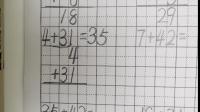 18
29
4+31=35
7+42=
4
+31
35+42=